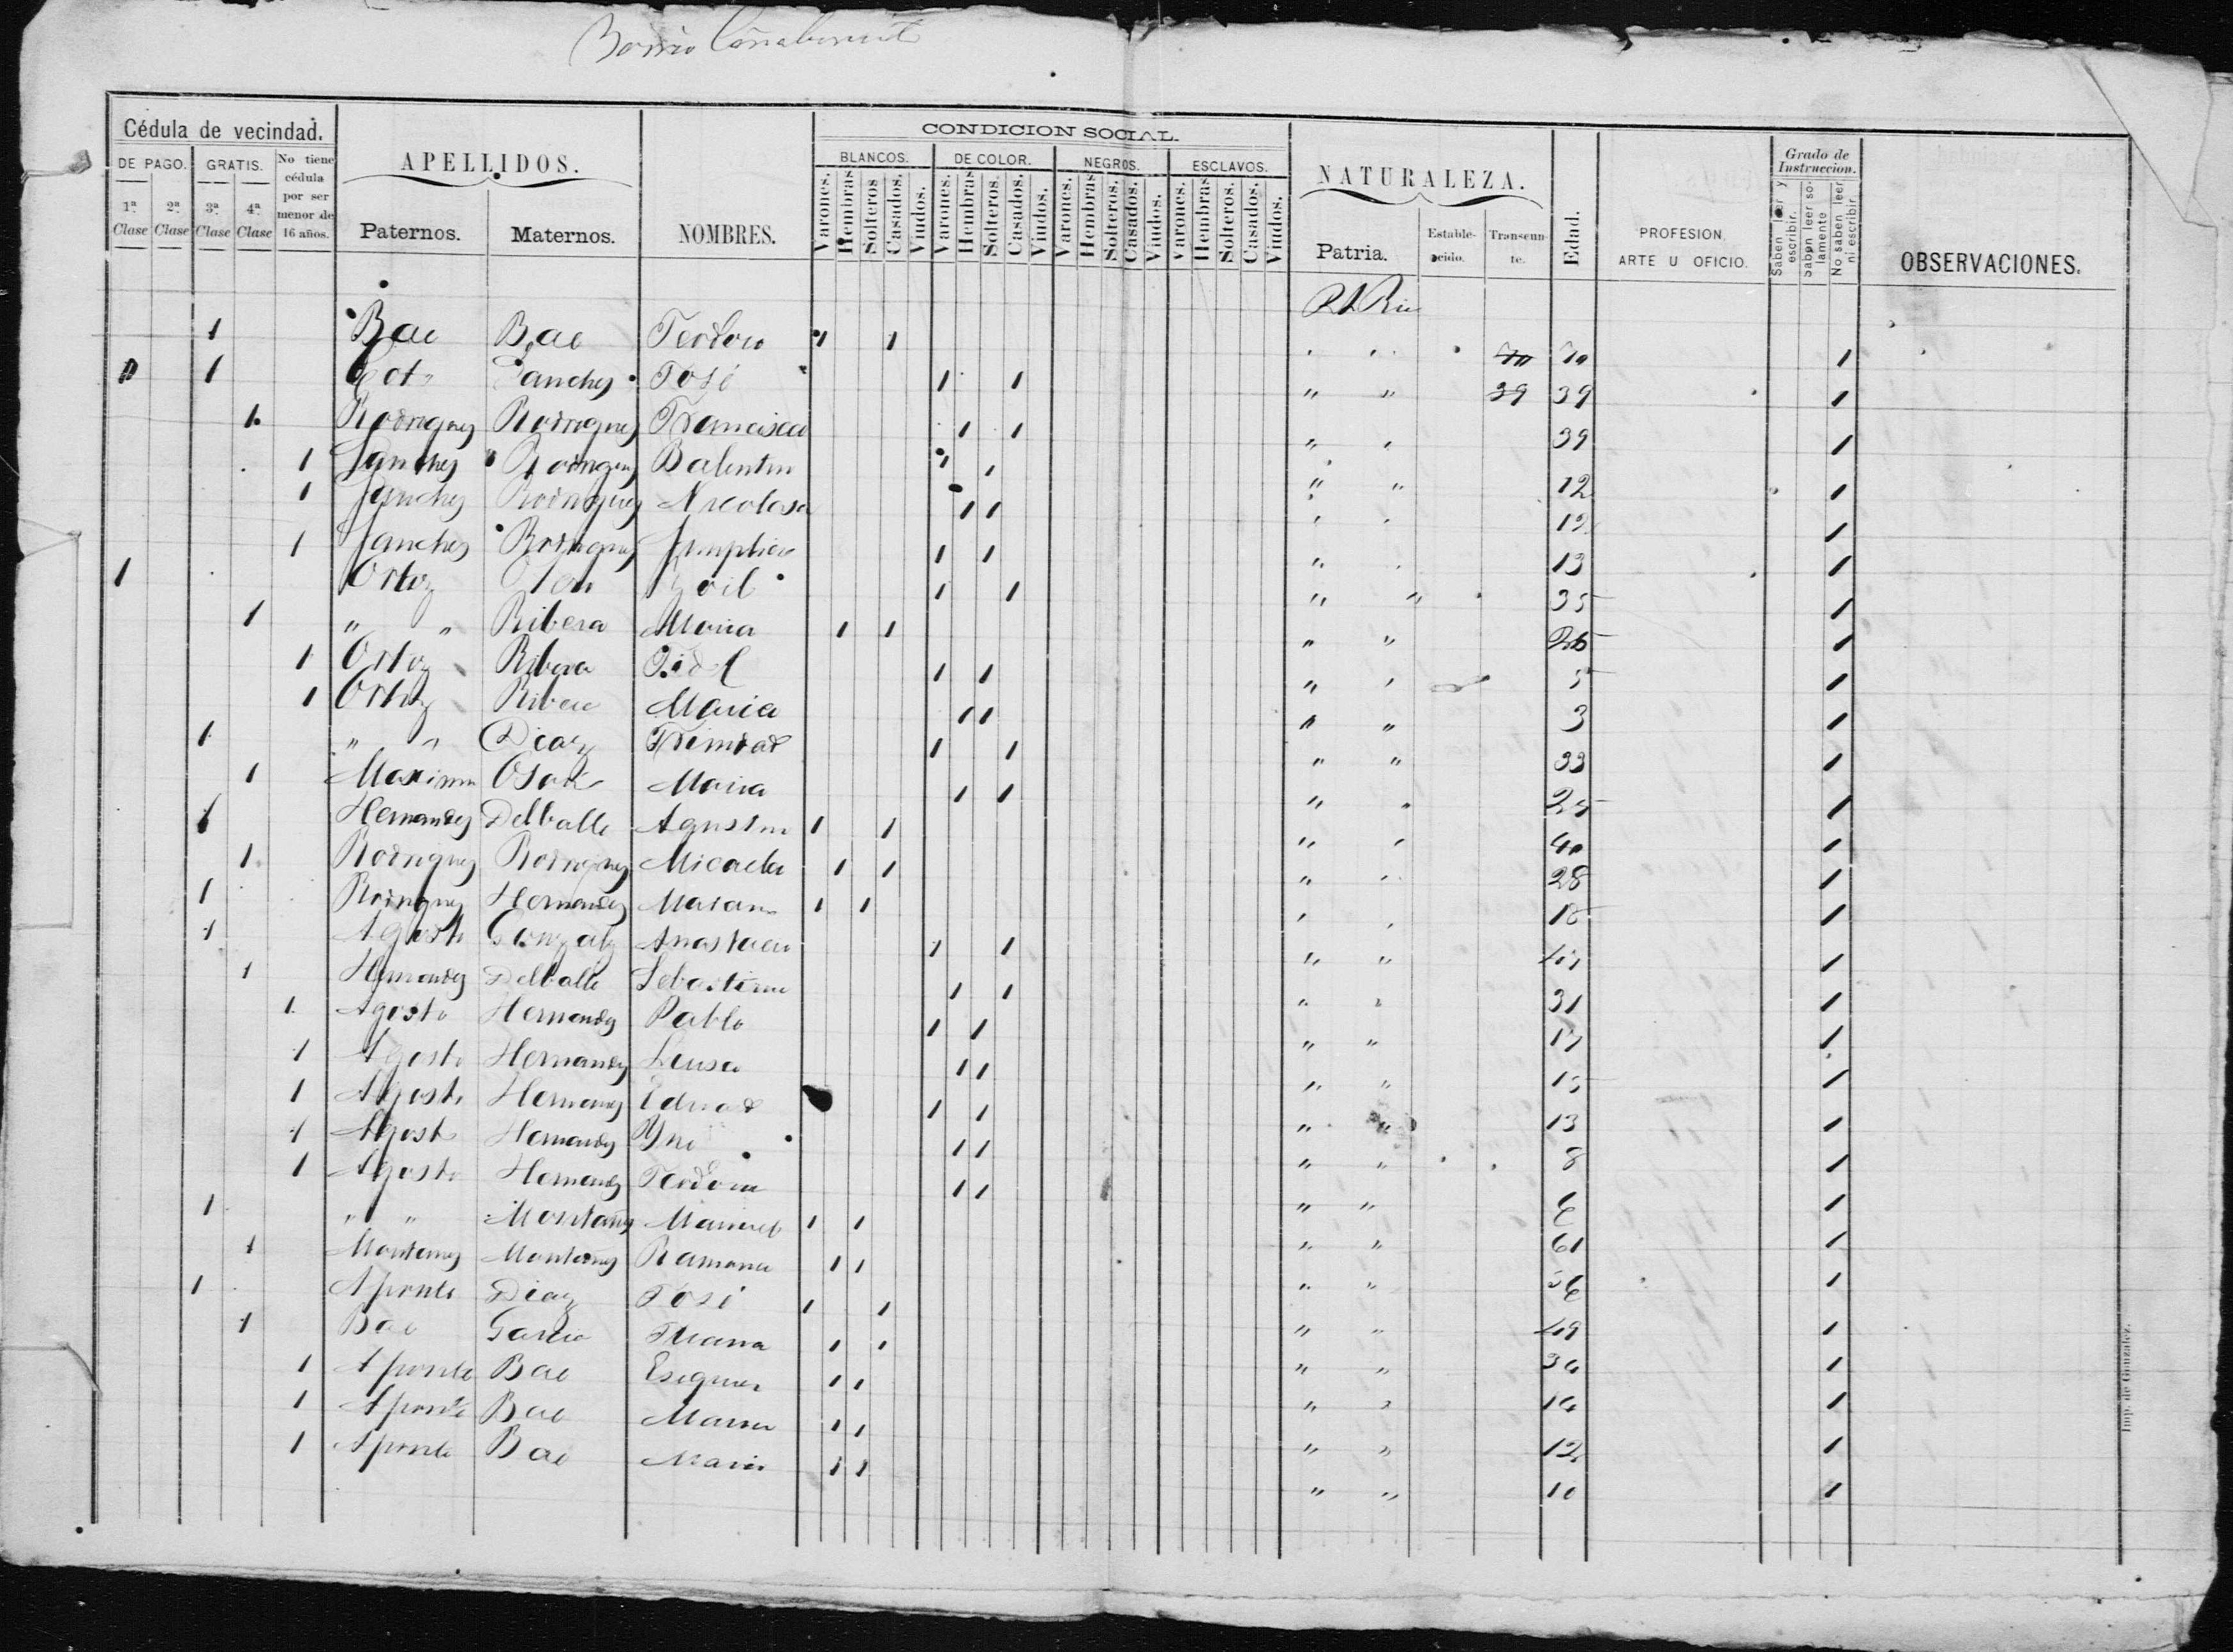 Barrio Cañaboncito
Cédula de vecindad. APELLIDOS. NOMBRES. CONDICION SOCIAL. NATURALEZA. Edad. PROFESION, ARTE U OFICIO. Grado de Instruccion. OBSERVACIONES.
DE PAGO. GRATIS. No tiene cédula por ser menor de 16 años. BLANCOS. DE COLOR. NEGROS. ESCLAVOS.
1ª Clase 2ª Clase 3ª Clase 4ª Clase Paternos. Maternos. Varones. Hembras Solteros Casados. Viudos. Varones. Hembras Solteros. Casados. Viudos. Varones. Hembras Solteros. Casados. Viudos. Varones. Hembras Solteros. Casados. Viudos. Patria. Estable-cido. Transeun-te. Saben leer y escribir. Saben leer so-lamente No saben leer ni escribir.
Pt Rico
1 Bae Bae Teodoro 1 1 " " 70 70 1
1 Coto Sanches José 1 1 " " 39 39 1
1 Rodrigues Rodrigues Francisca 1 1 " " 39 1
1 Sanches Rodrigues Balentin 1 1 " " 12 1
1 Sanches Rodrigues Nicolasa 1 1 " " 12 1
1 Sanches Rodrigues 1 1 " " 13 1
1 Ortiz 1 1 " " 35 1
1 " " Ribera Maria 1 1 " " 1
1 Ortiz Ribera Fidel 1 1 " " 5 1
1 Ortiz Ribera Maria 1 1 " " 3 1
1 " " Diaz Trinidad 1 1 " " 33 1
1 Maria 1 1 " " 25 1
1 Hernandez Delballe Agustin 1 1 " " 40 1
1 Rodrigues Rodrigues Micaela 1 1 " " 28 1
1 Rodrigues Hernandez 1 1 " " 18 1
1 Agosto Gonzalez Anastacio 1 1 " " 1
1 Hernandez Delballe Sebastiana 1 1 " " 31 1
1 Agosto Hernandez Pablo 1 1 " " 1
1 Agosto Hernandez Luisa 1 1 " " 15 1
1 Agosto Hernandez Eduard 1 1 " " 13 1
1 Agosto Hernandez 1 1 " " 8 1
1 Agosto Hernandez Teodora 1 1 " " 6 1
1 " " Montañes Manuel 1 1 " " 61 1
1 Montanes Montanes Ramona 1 1 " " 56 1
1 Aponte Diaz José 1 1 " " 49 1
1 Bae Garcia Juana 1 1 " " 34 1
1 Aponte Bae 1 1 " " 14 1
1 Aponte Bae Maria 1 1 " " 12 1
1 Aponte Bae Maria 1 1 " " 10 1
Imp. de Gonzalez.